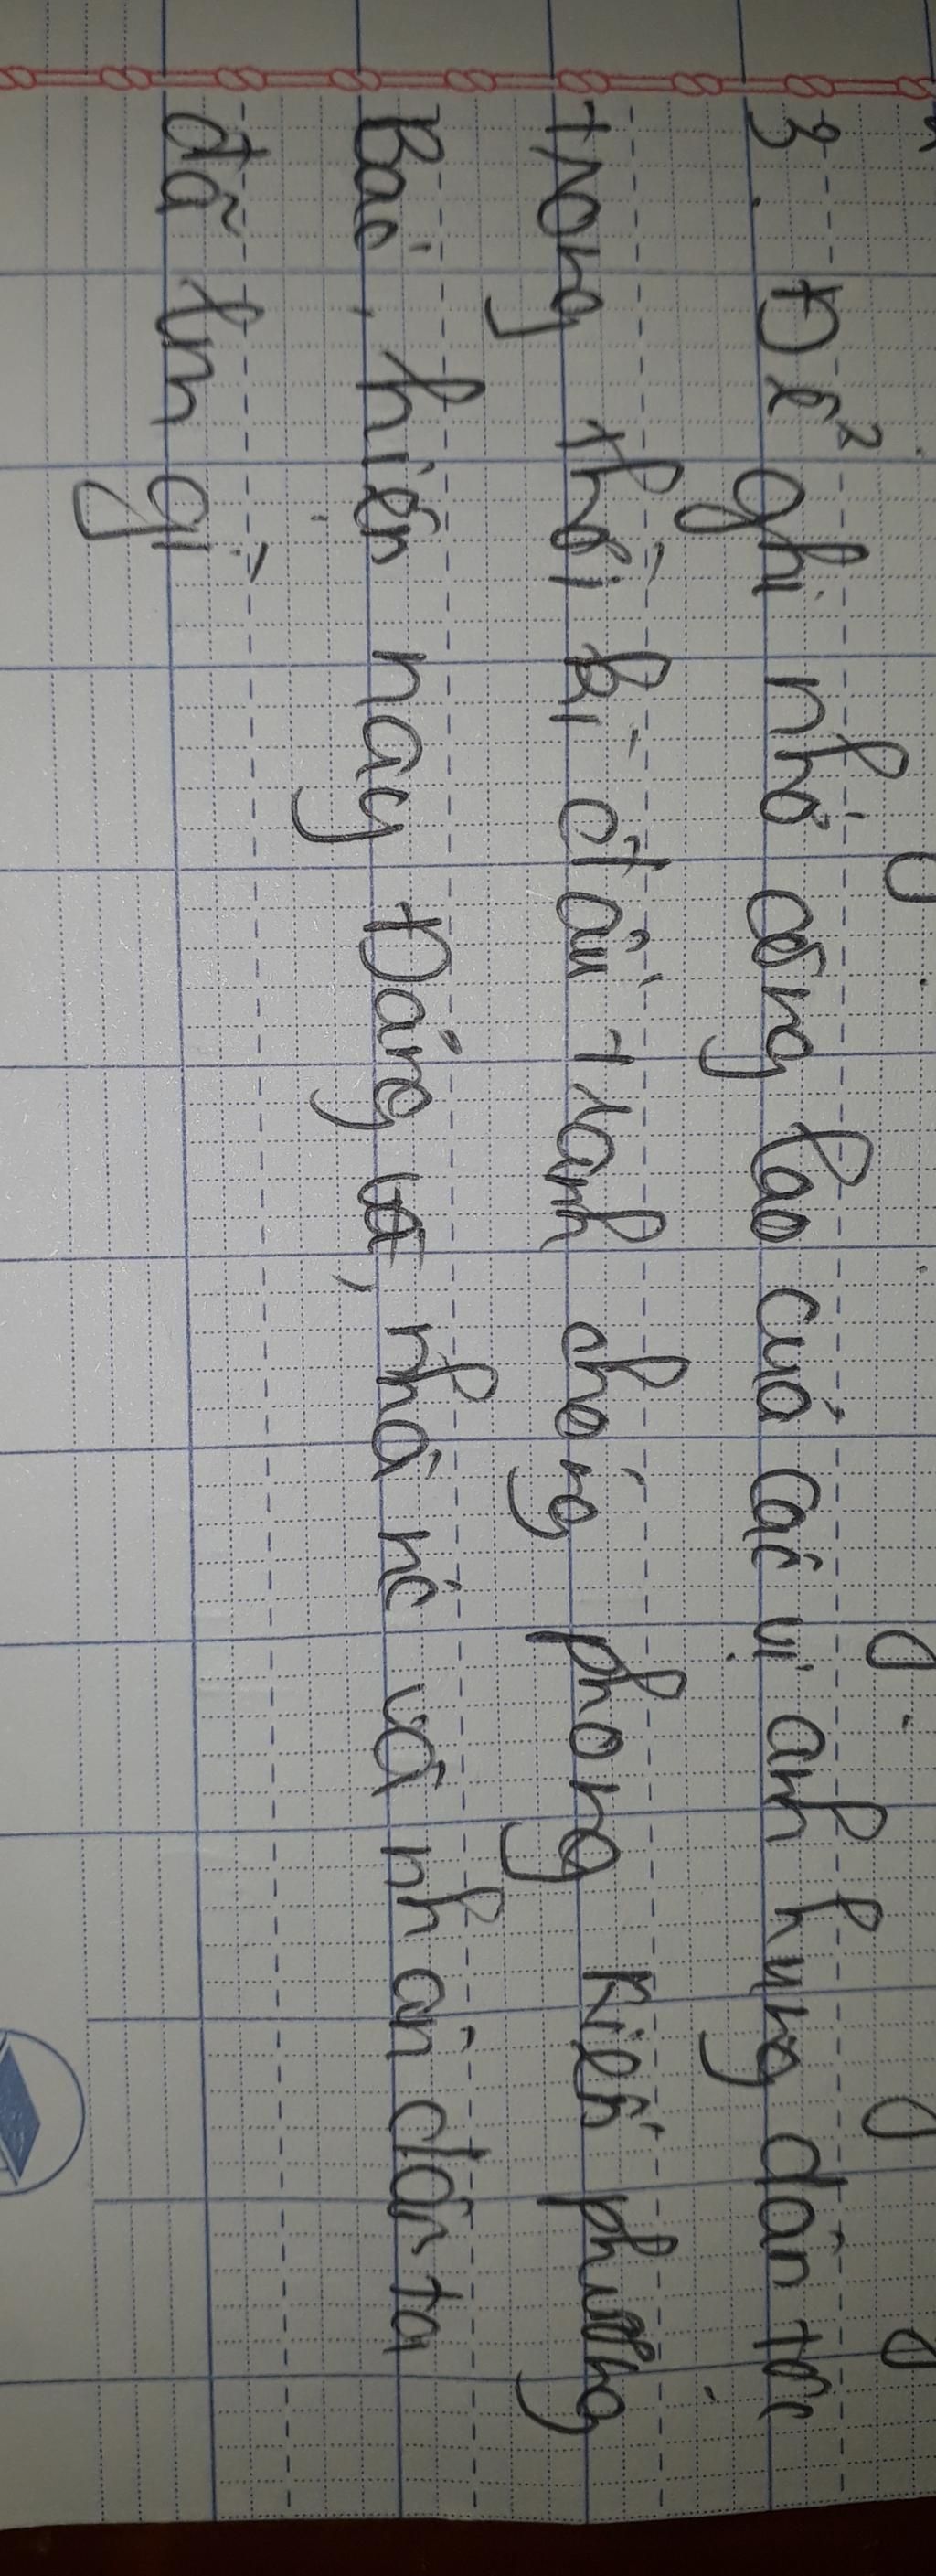 3. Để ghi nhớ công lao của các vị anh hùng dân tộc
trong thời kì đấu tranh chống phong kiến phương
Bắc, hiện nay Đảng và, nhà nc và nhân dân ta
đã lm gì